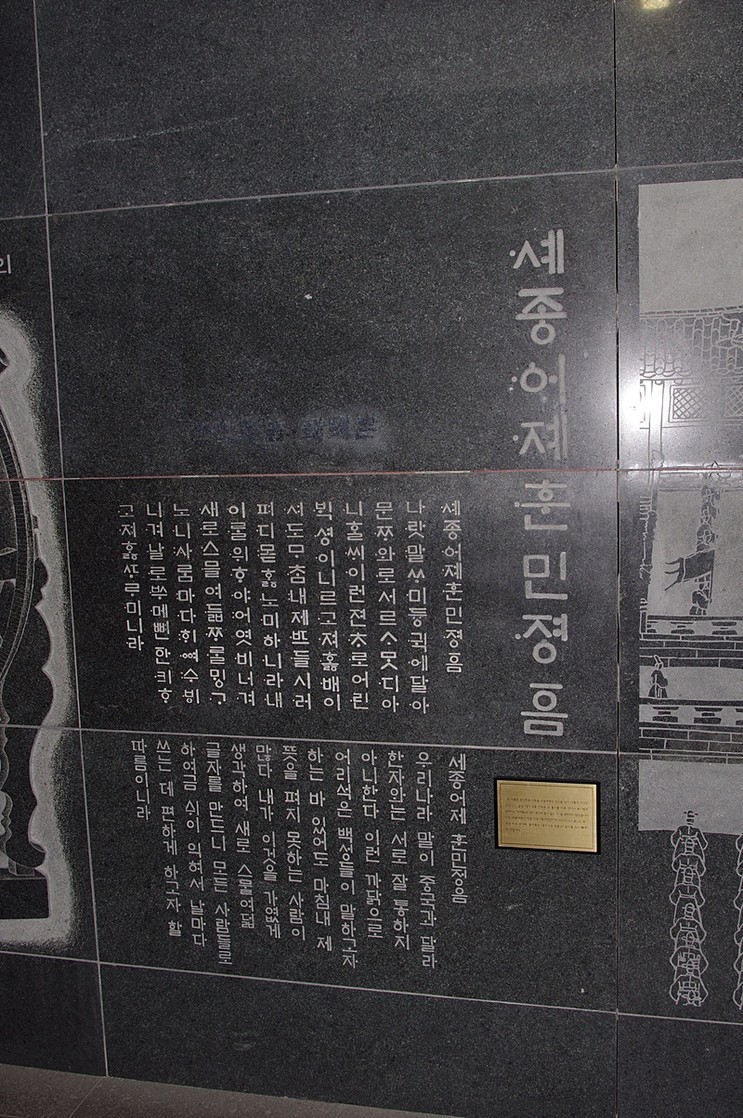 셰종어졔훈민졍ᅙᅳᆷ
셰종어졔훈민졍ᅙᅳᆷ
나랏말ᄊᆞ미듕귁에달아
문ᄍᆞ와로서르ᄉᆞᄆᆞᆺ디아
니ᄒᆞᆯᄊᆡ이런젼ᄎᆞ로어린
ᄇᆡᆨ셩이니르고져ᄒᆞᇙ배이
셔도ᄆᆞᄎᆞᆷ내제ᄠᅳ들시러
펴디몯ᄒᆞᇙ노미하니라내
이ᄅᆞᆯ위ᄒᆞ야어엿비너겨
새로스믈여듧ᄍᆞᄅᆞᆯᄆᆡᇰᄀᆞ
노니사ᄅᆞᆷ마다ᄒᆡᅇᅧ수ᄫᅵ
니겨날로ᄡᅮ메뼌한킈ᄒᆞ
고져ᄒᆞᇙᄯᆞᄅᆞ미니라
세종어제 훈민정음
우리나라 말이 중국과 달라
한자와는 서로 잘 통하지
아니한다 이런 까닭으로
어리석은 백성들이 말하고자
하는 바 있어도 마침내 제
뜻을 펴지 못하는 사람이
많다 내가 이것을 가엾게
생각하여 새로 스물여덟
글자를 만드니 모든 사람들로
하여금 쉬이 익혀서 날마다
쓰는 데 편하게 하고자 할
따름이니라
의